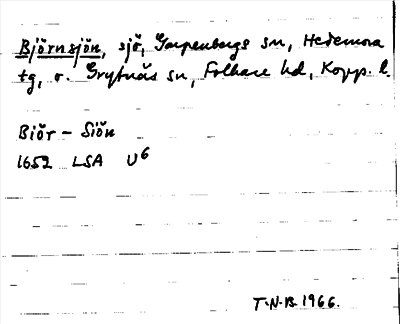 Björnsjön, sjö, Garpenbergs sn, Hedemora
tg, o. Grytnäs sn, Folkare hd, Kopp. l.
Biör - Siön
1652 LSA U6
T.N.B. 1966.